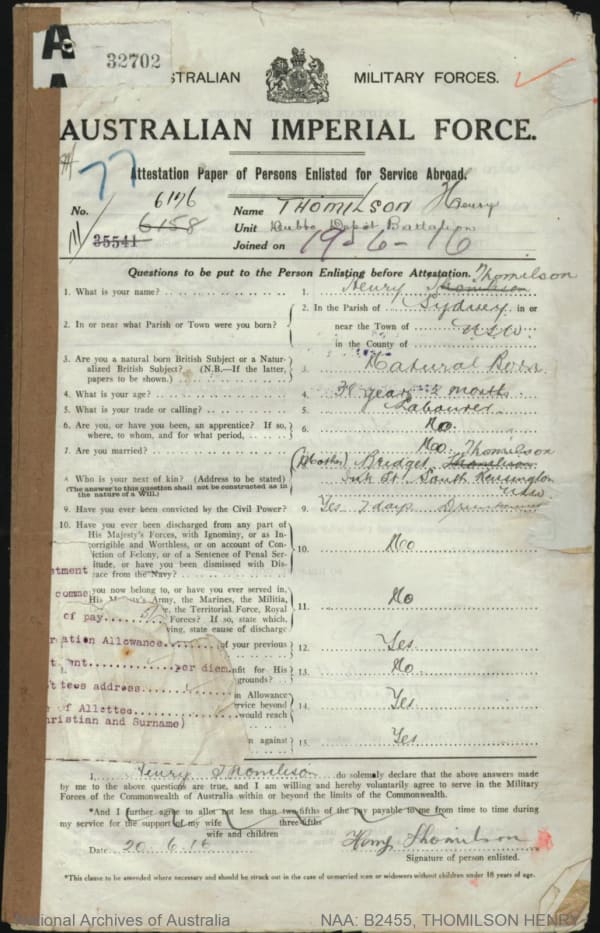 A
A 32702
STRALIAN MILITARY FORCES.
AUSTRALIAN IMPERIAL FORCE.
77
Attestation Paper of Persons Enlisted for Service Abroad.
6146
No. 6158 Name THOMILSON Henry
35541 Unit Dubbo Depot Battalion
Joined on 19-6-16
Questions to be put to the Person Enlisting before Attestation.
1. What is your name? 1. Henry Thomilson Thomilson
2. In or near what Parish or Town were you born? 2. In the Parish of Sydney in or
near the Town of NSW
in the County of
3. Are you a natural born British Subject or a Natur-
alized British Subject? (N.B.—If the latter, 3. Natural Born
papers to be shown.)
4. What is your age? 4. 38 years 2 months
5. What is your trade or calling? 5. Labourer
6. Are you, or have you been, an apprentice? If so, 6. No.
where, to whom, and for what period,
7. Are you married? 7. No.
8. Who is your next of kin? (Address to be stated) (Mother) Bridget Thomilson Thomilson
(The answer to this question shall not be constructed as in
the nature of a Will.) St South Kensington
NSW
9. Have you ever been convicted by the Civil Power? 9. Yes 7 days
10. Have you ever been discharged from any part of
His Majesty's Forces, with Ignominy, or as In-
corrigible and Worthless, or on account of Con- 10. No
viction of Felony, or of a Sentence of Penal Ser-
itude, or have you been dismissed with Dis-
race from the Navy?
you now belong to, or have you ever served in,
His Majesty's Army, the Marines, the Militia, 11. No
the Territorial Force, Royal
Forces? If so, state which,
ving, state cause of discharge
of your previous 12. Yes
nfit for His 13. No
grounds?
in Allowance
ervice beyond 14. Yes
would reach
n against 15. Yes
tment
comme
of pay
ration Allowance
ent per diem.
ttees address
of Allottee
hristian and Surname)
I, Henry Thomilson do solemnly declare that the above answers made
by me to the above questions are true, and I am willing and hereby voluntarily agree to serve in the Military
Forces of the Commonwealth of Australia within or beyond the limits of the Commonwealth.
*And I further agree to allot not less than two-fifths of the pay payable to me from time to time during
three-fifths
my service for the support of my wife
wife and children
Date 20.6.16 Henry Thomilson
Signature of person enlisted.
*This clause to be amended where necessary and should be struck out in the case of unmarried men or widowers without children under 18 years of age.
National Archives of Australia NAA: B2455, THOMILSON HENRY